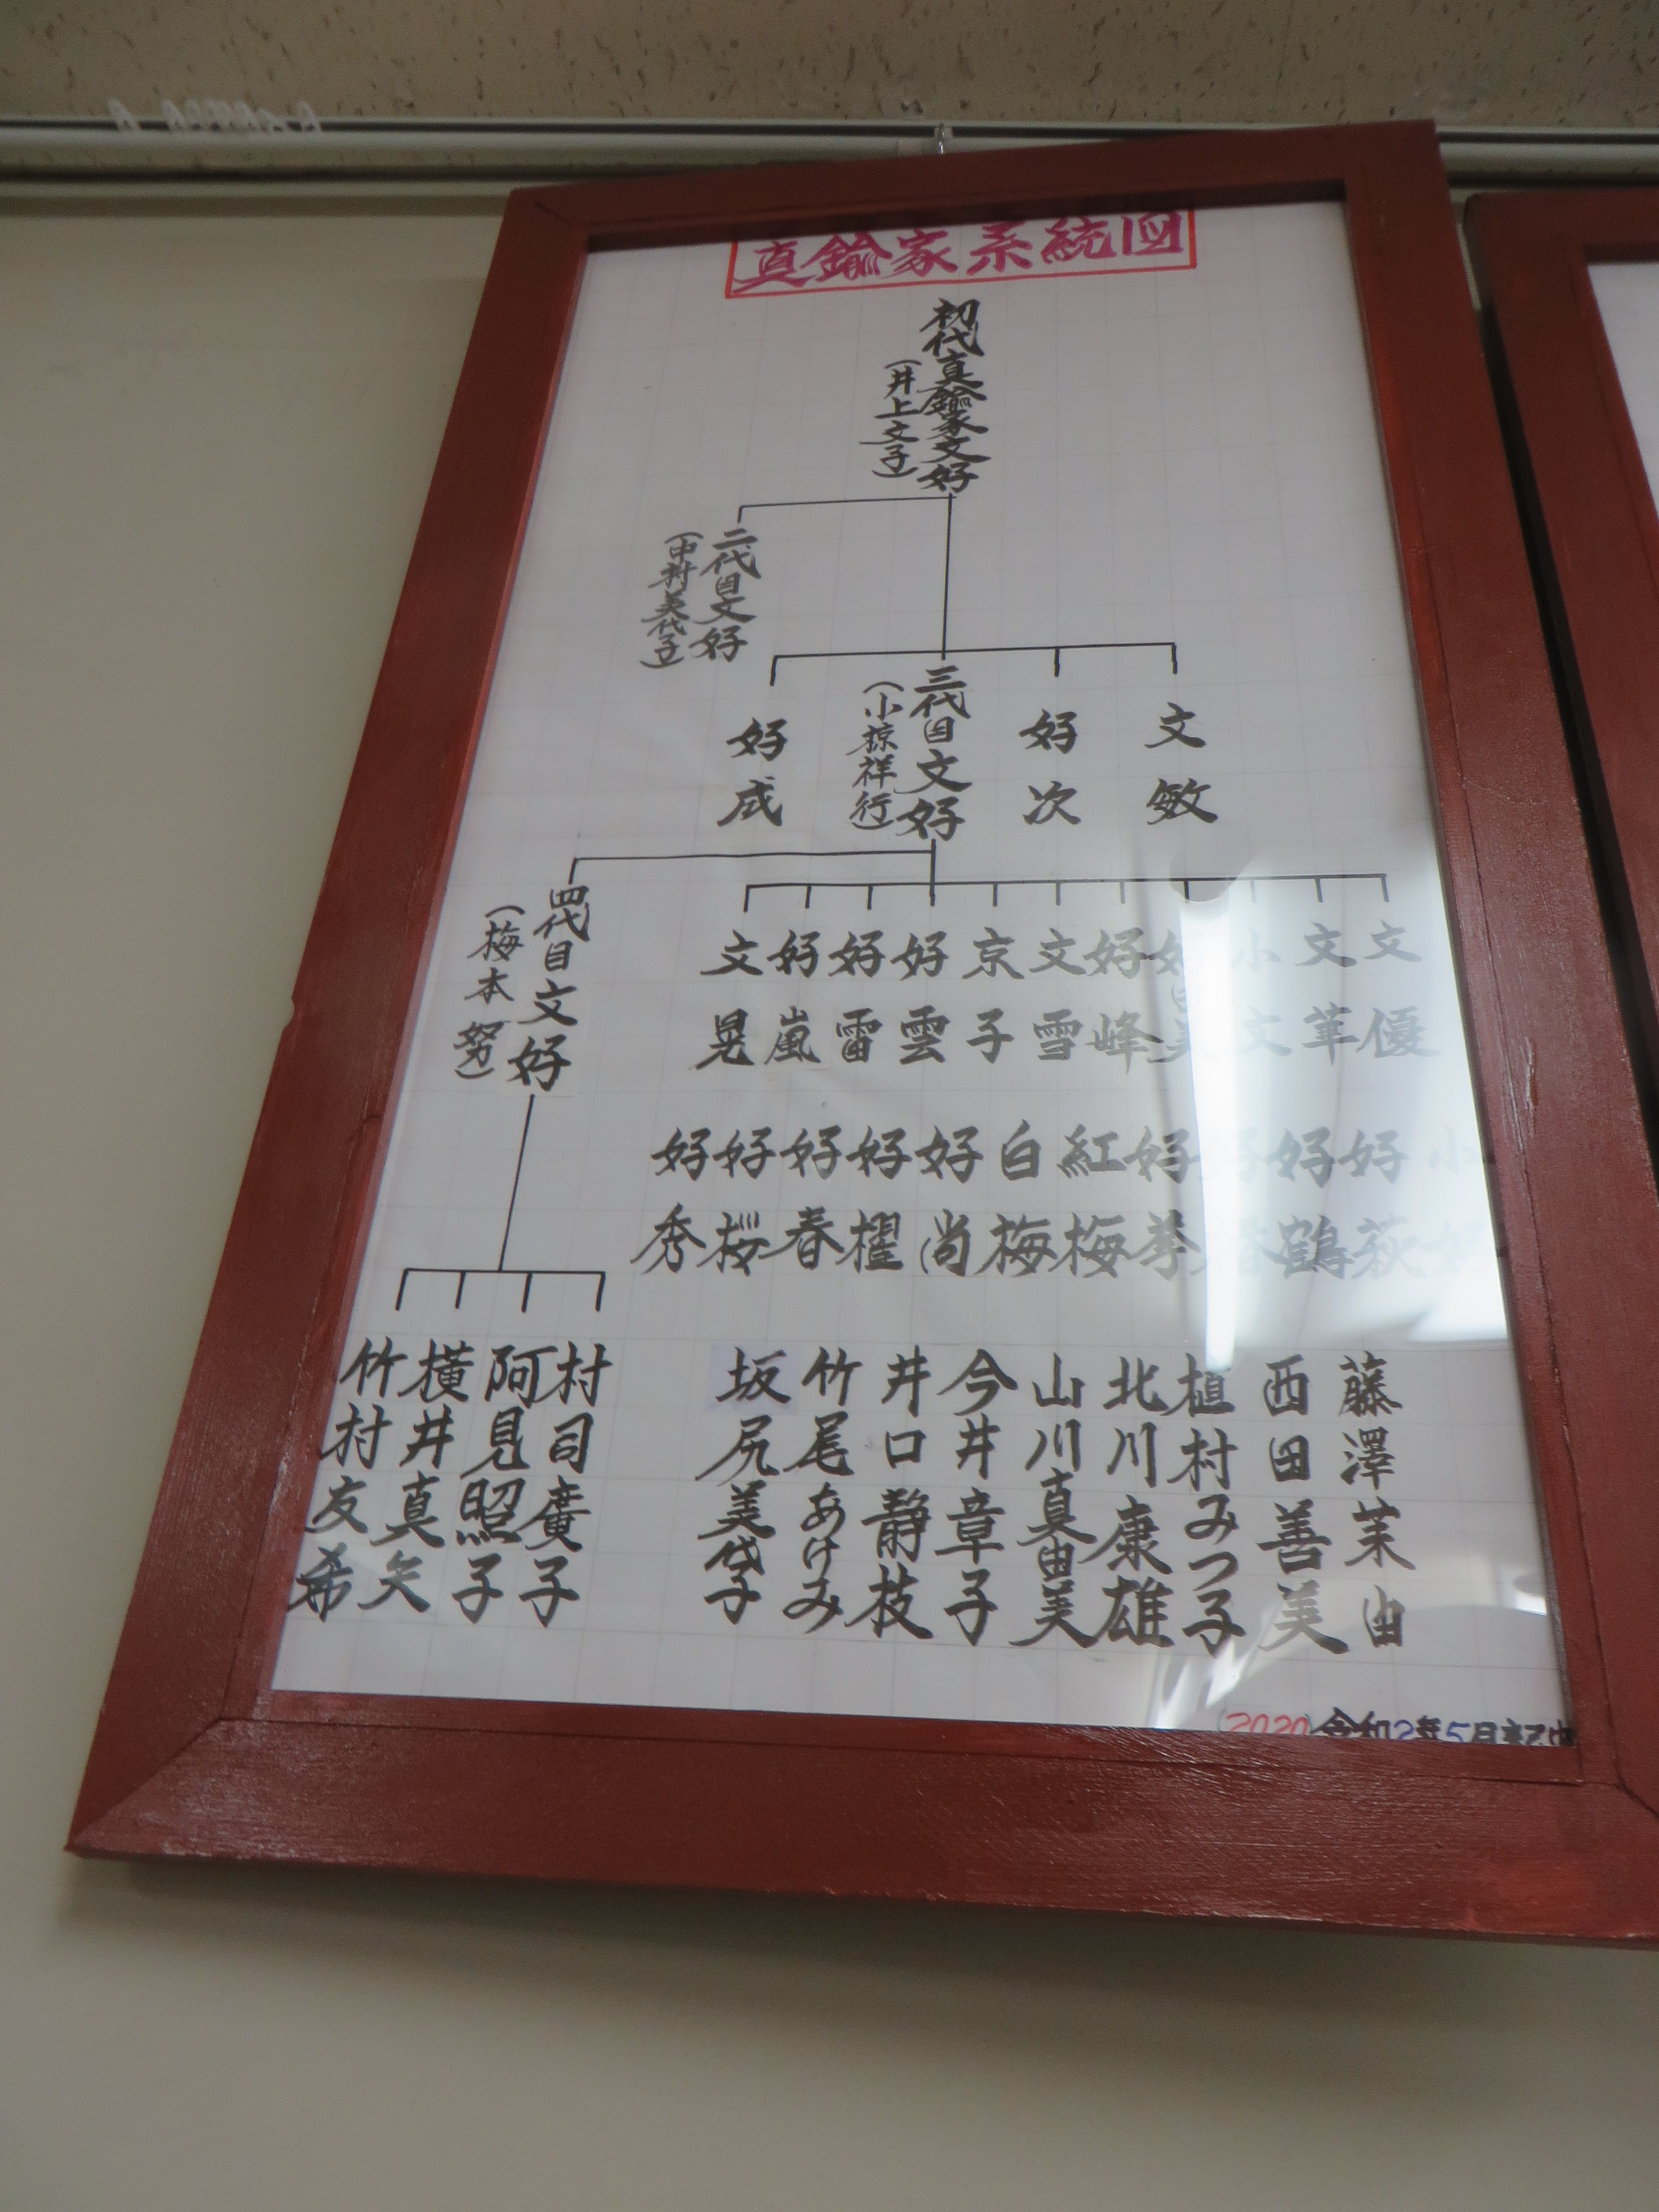 真鍮家系統図
初代真鍮家文好
(井上文子)
二代目文好
(中村美代子)
文敏
好次
三代目文好
(小掠祥行)
好成
文優
文華
小文
好美
好峰
文雪
京子
好雲
好雷
好嵐
文晃
四代目文好
(梅本努)
好萩
好鶴
紅梅
白梅
好尚
好櫂
好春
好桜
好秀
藤澤茉由
西田善美
植村みつ子
北川康雄
山川真由美
今井章子
井口静枝
竹尾あけみ
坂尻美代子
村司廣子
阿見照子
横井真矢
竹村友希
2020 令和2年5月記